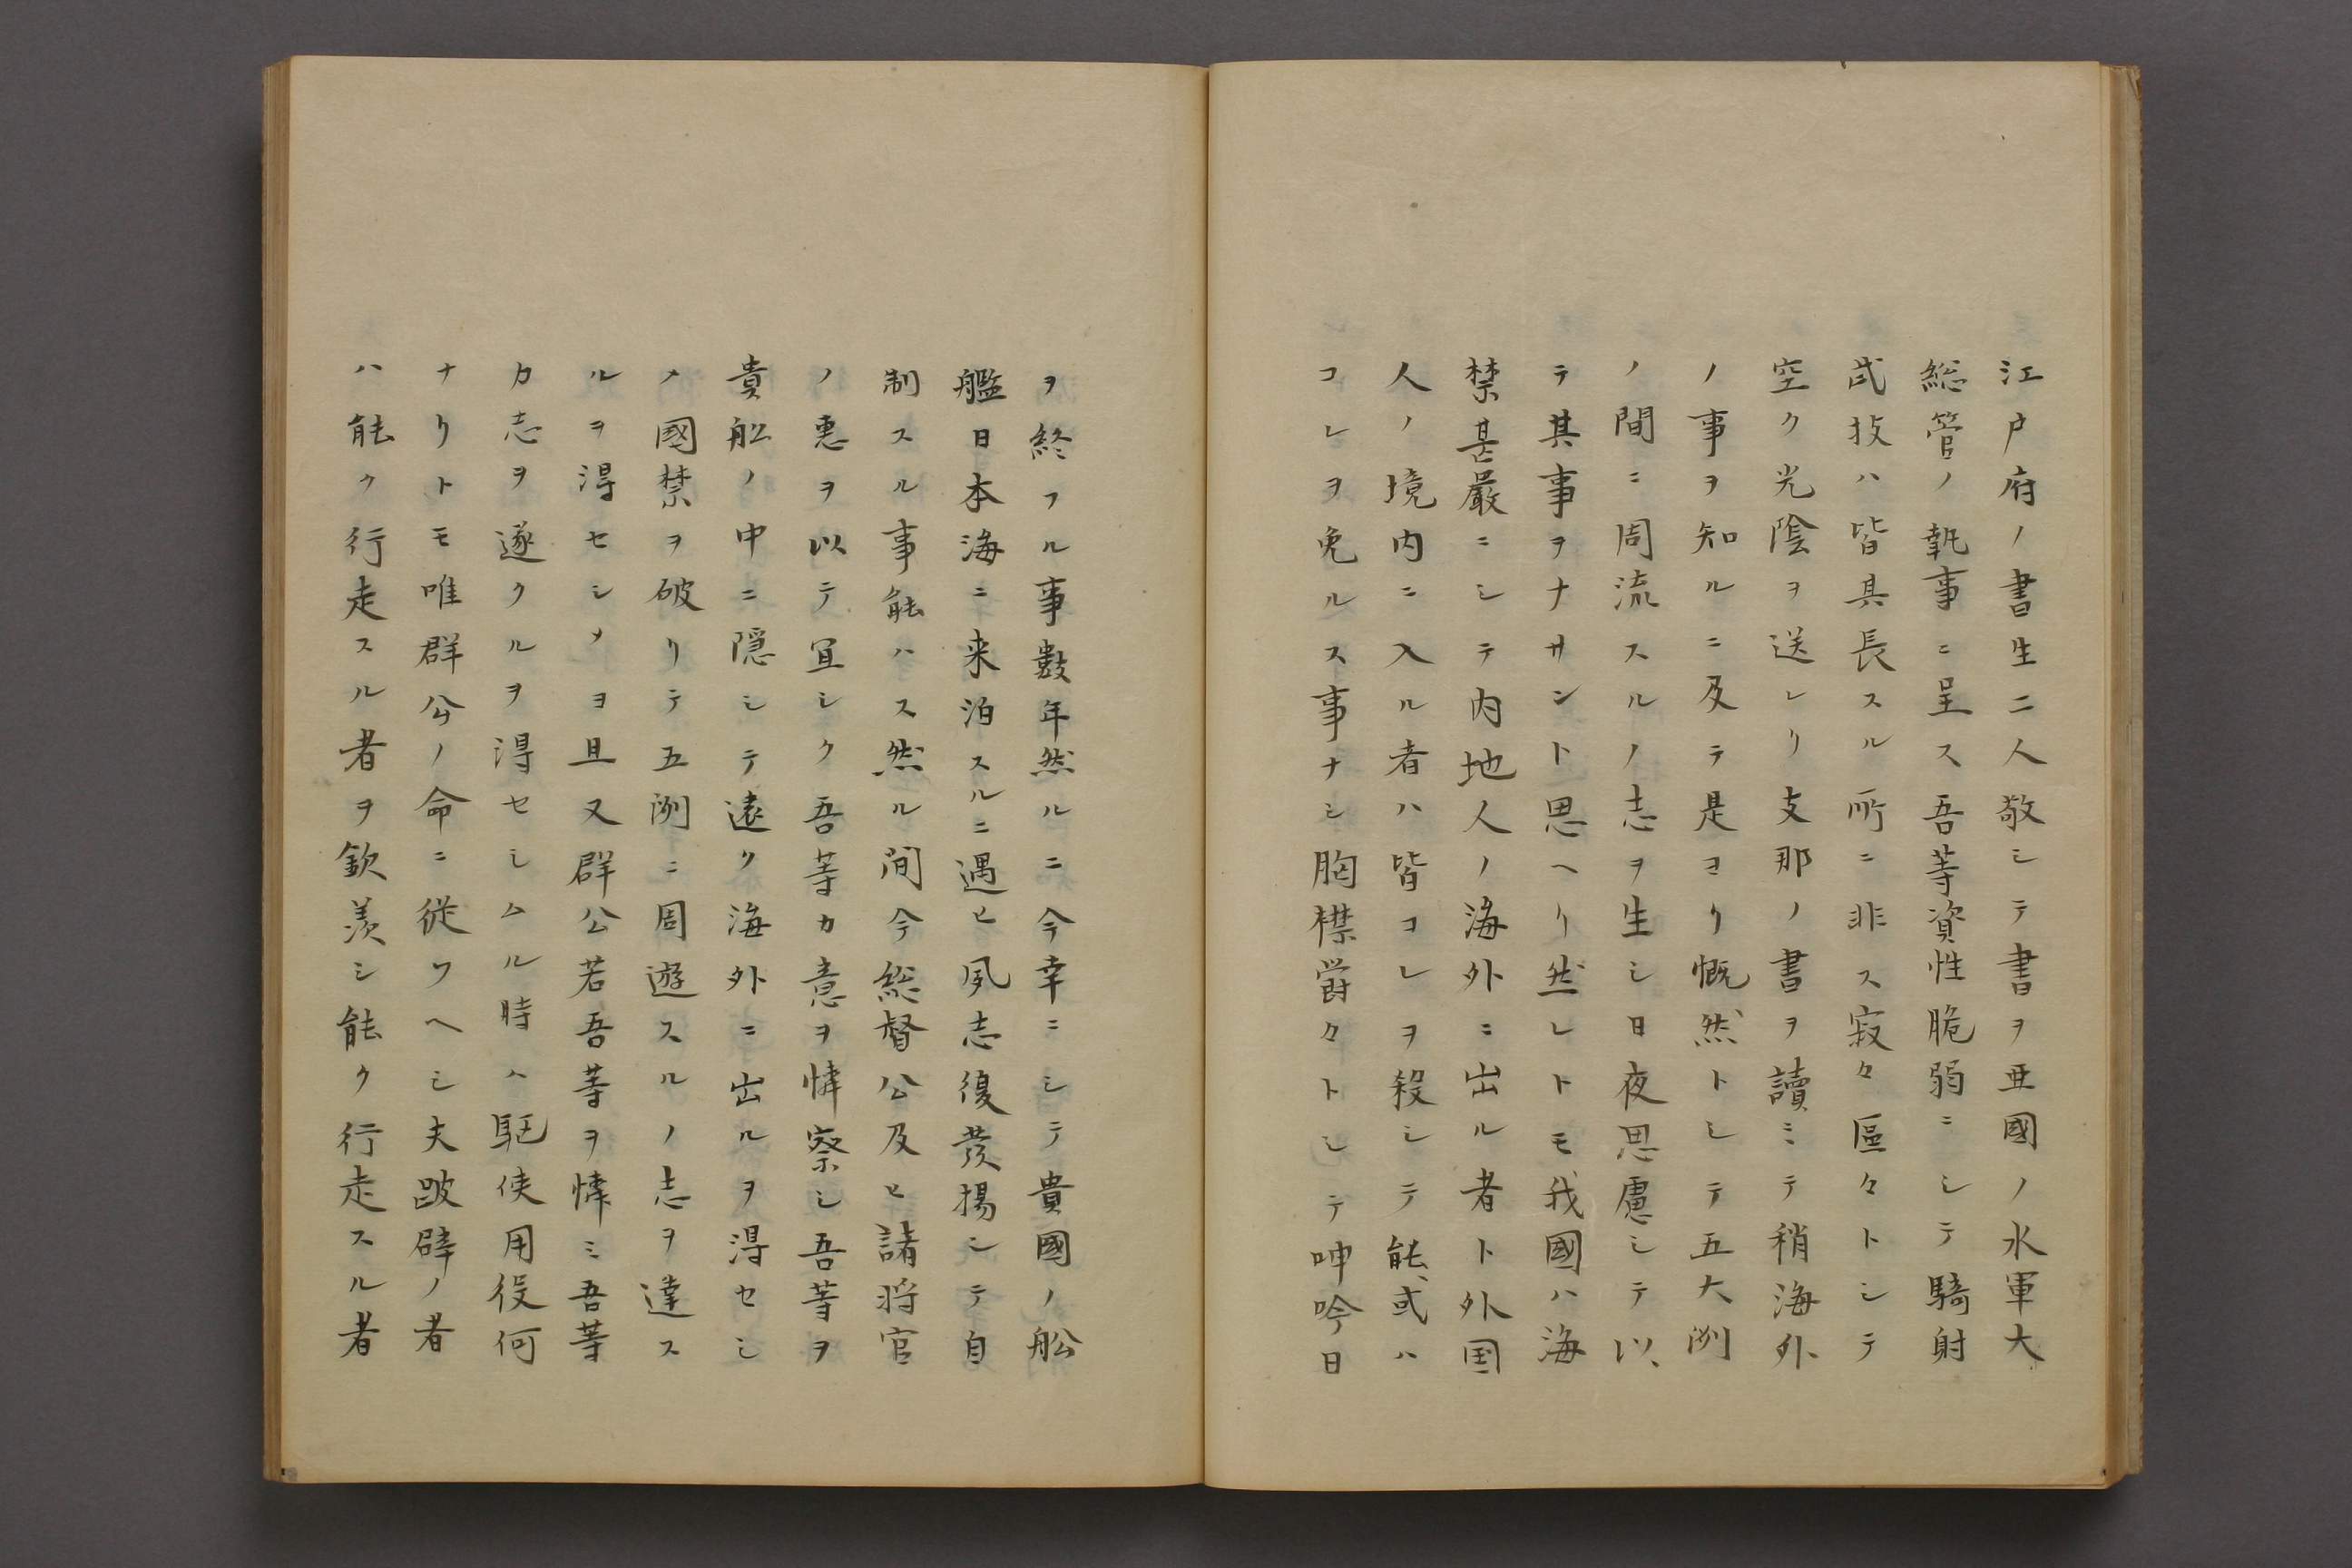 江戸府ノ書生二人敬シテ書ヲ亜國ノ水軍大
総管ノ執事ニ呈ス吾等資性脆弱ニシテ騎射
武技ハ皆其長スル所ニ非ス寂々區々トシテ
空ク光陰ヲ送レリ支那ノ書ヲ讀ミテ稍海外
ノ事ヲ知ルニ及テ是ヨリ慨然トシテ五大洲
ノ間ニ周流スルノ志ヲ生シ日夜思慮シテ以
テ其事ヲナサント思ヘリ然レトモ我國ハ海
禁甚嚴ニシテ内地人ノ海外ニ出ル者ト外国
人ノ境内ニ入ル者ハ皆コレヲ殺シテ能或ハ
コレヲ免ルス事ナシ胸襟欝々トシテ呻吟日
ヲ終フル事數年然ルニ今幸ニシテ貴國ノ舩
艦日本海ニ来泊スルニ遇ヒ夙志復發揚シテ自
制スル事能ハス然ル間今総督公及ヒ諸将官
ノ惠ヲ以テ宜シク吾等カ意ヲ憐察シ吾等ヲ
貴舩ノ中ニ隠シテ遠ク海外ニ出ルヲ得セシ
メ國禁ヲ破リテ五洲ニ周遊スルノ志ヲ達ス
ルヲ得セシメヨ且又群公若吾等ヲ憐ミ吾等
カ志ヲ遂クルヲ得セシムル時ハ駈使用役何
ナリトモ唯群公ノ命ニ従ワヘシ夫跛躃ノ者
ハ能ク行走スル者ヲ欽羨シ能ク行走スル者